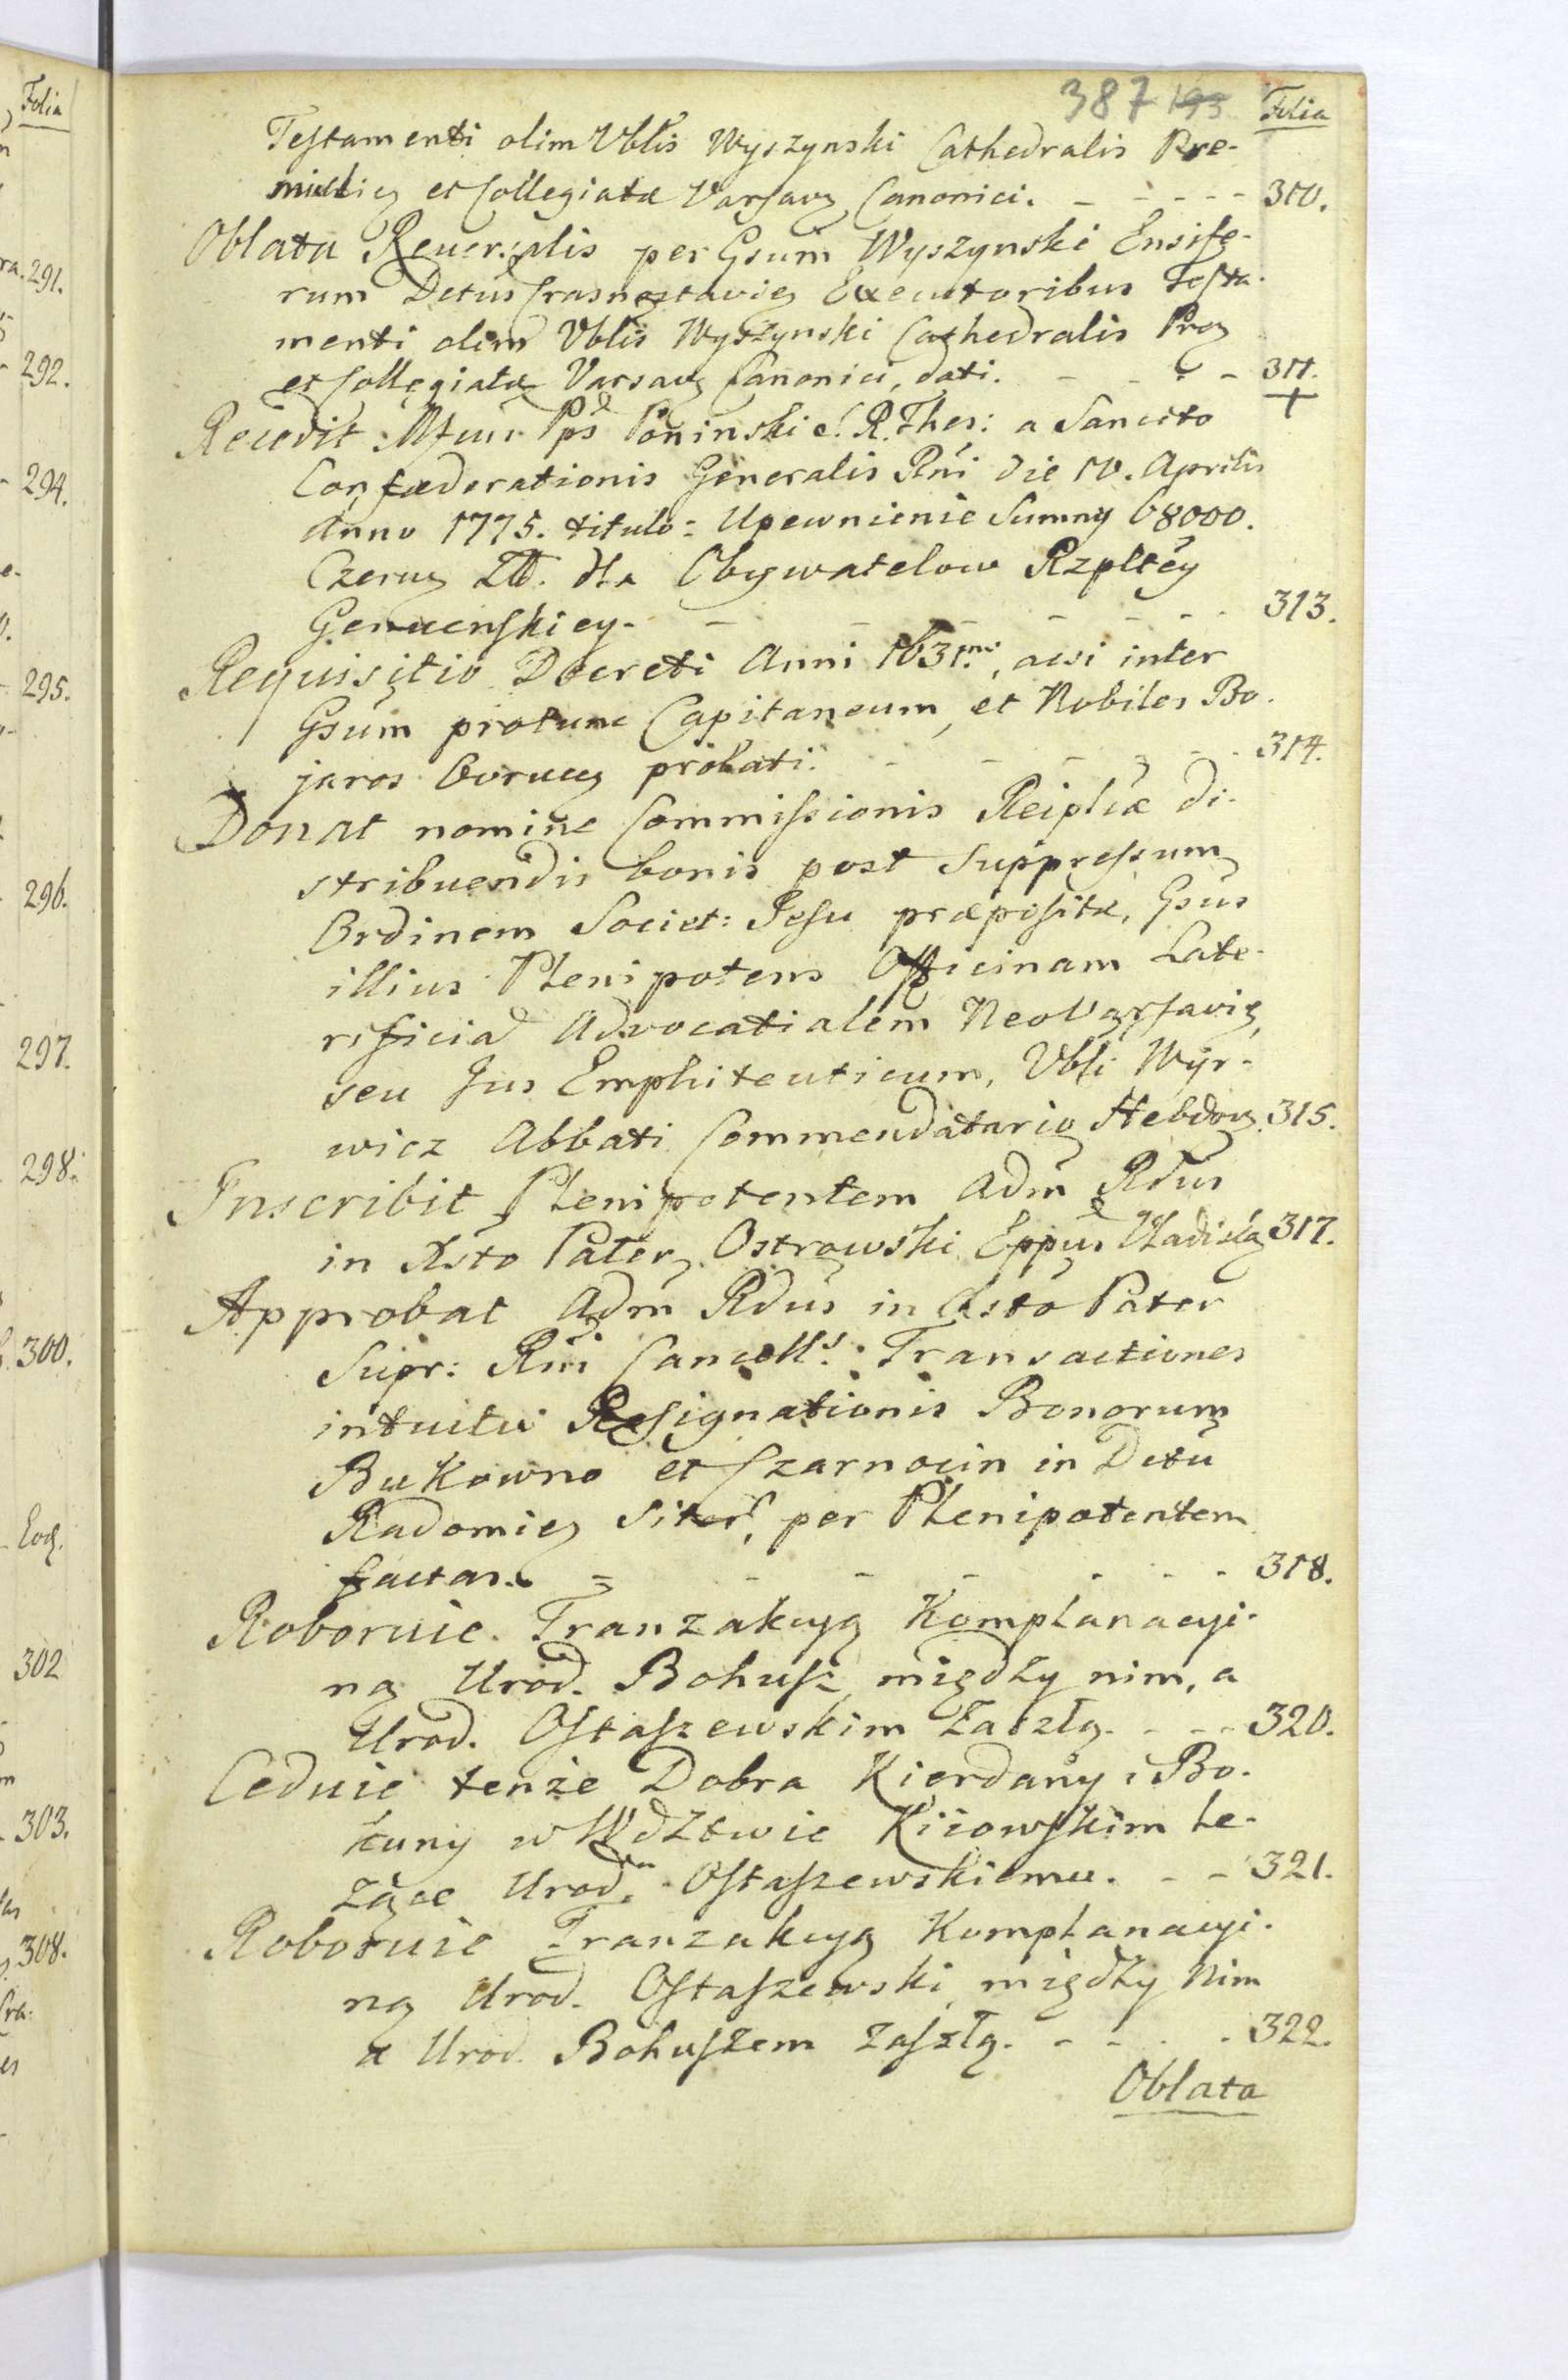 387 193 Folia
Testamenti olim Vblis Wyszynski Cathedralis Pre-
et Collegiatæ Varsavę Canonici. - - - - - 310.
Oblata Reversalis per Gsum Wyszynski Ensife-
rum Dctus Crasnostavieę Executoribus Testa-
menti olim Vblis Wyszynski Cathedralis
et Collegiatæ Varsavę Canonici, dati. - - - - 311.
Recedit Mfcus Pps Poninski S. R. Thes: a Sancito
Confæderationis Generalis Rni die 10. Aprilis
Anno 1775. titulo: Upewnienie Summy 68000.
Czerwę Złł. dla Obywatelow Rzpltey
Genuenskiey. - - - - - - 313.
Requisitio Decreti Anni 1631mi, acsi inter
Gsum protunc Capitaneum, et Nobiles Bo-
jaros Ovrucę probati. - - - - - 314.
Donat nomine Commissionis Reiplicæ di-
stribuendis bonis post Suppressum
Ordinem Societ: Jesu præpositæ, Gsus
illius Plenipotens Officinam Late-
rificiâ Advocatialem NeoVarsavię,
seu Jus Emphiteuticum, Vbli Wyr-
wicz Abbati Commendatario Hebdovę. 315.
Inscribit Plenipotentem Adm Rdus
in Xsto Pater Ostrowski Eppus Vladislaę 317.
Approbat Adm Rdus in Xsto Pater
Supr: Rni Cancell: Transactiones
intuitu Resignationis Bonorum
Bukowno et Czarnocin in Dctu
Radomieę per Plenipotentem
factas. - - - - - - - 318.
Roboruie Tranzakcyą Komplanacyi-
ną Urod. Bohusz między nim, a
Urod. Ostaszewskim zaszłą. - - - 320.
Ceduie tenże Dobra Kierdany i Bo-
łuny w Wdztwie Kiiowskim le-
żące Urod. Ostaszewskiemu. - - 321.
Roboruie Tranzakcyą Komplanacyi-
ną Urod. Ostaszewski między Nim
a Urod. Bohuszem zaszłą. - - - - 322.
Oblata